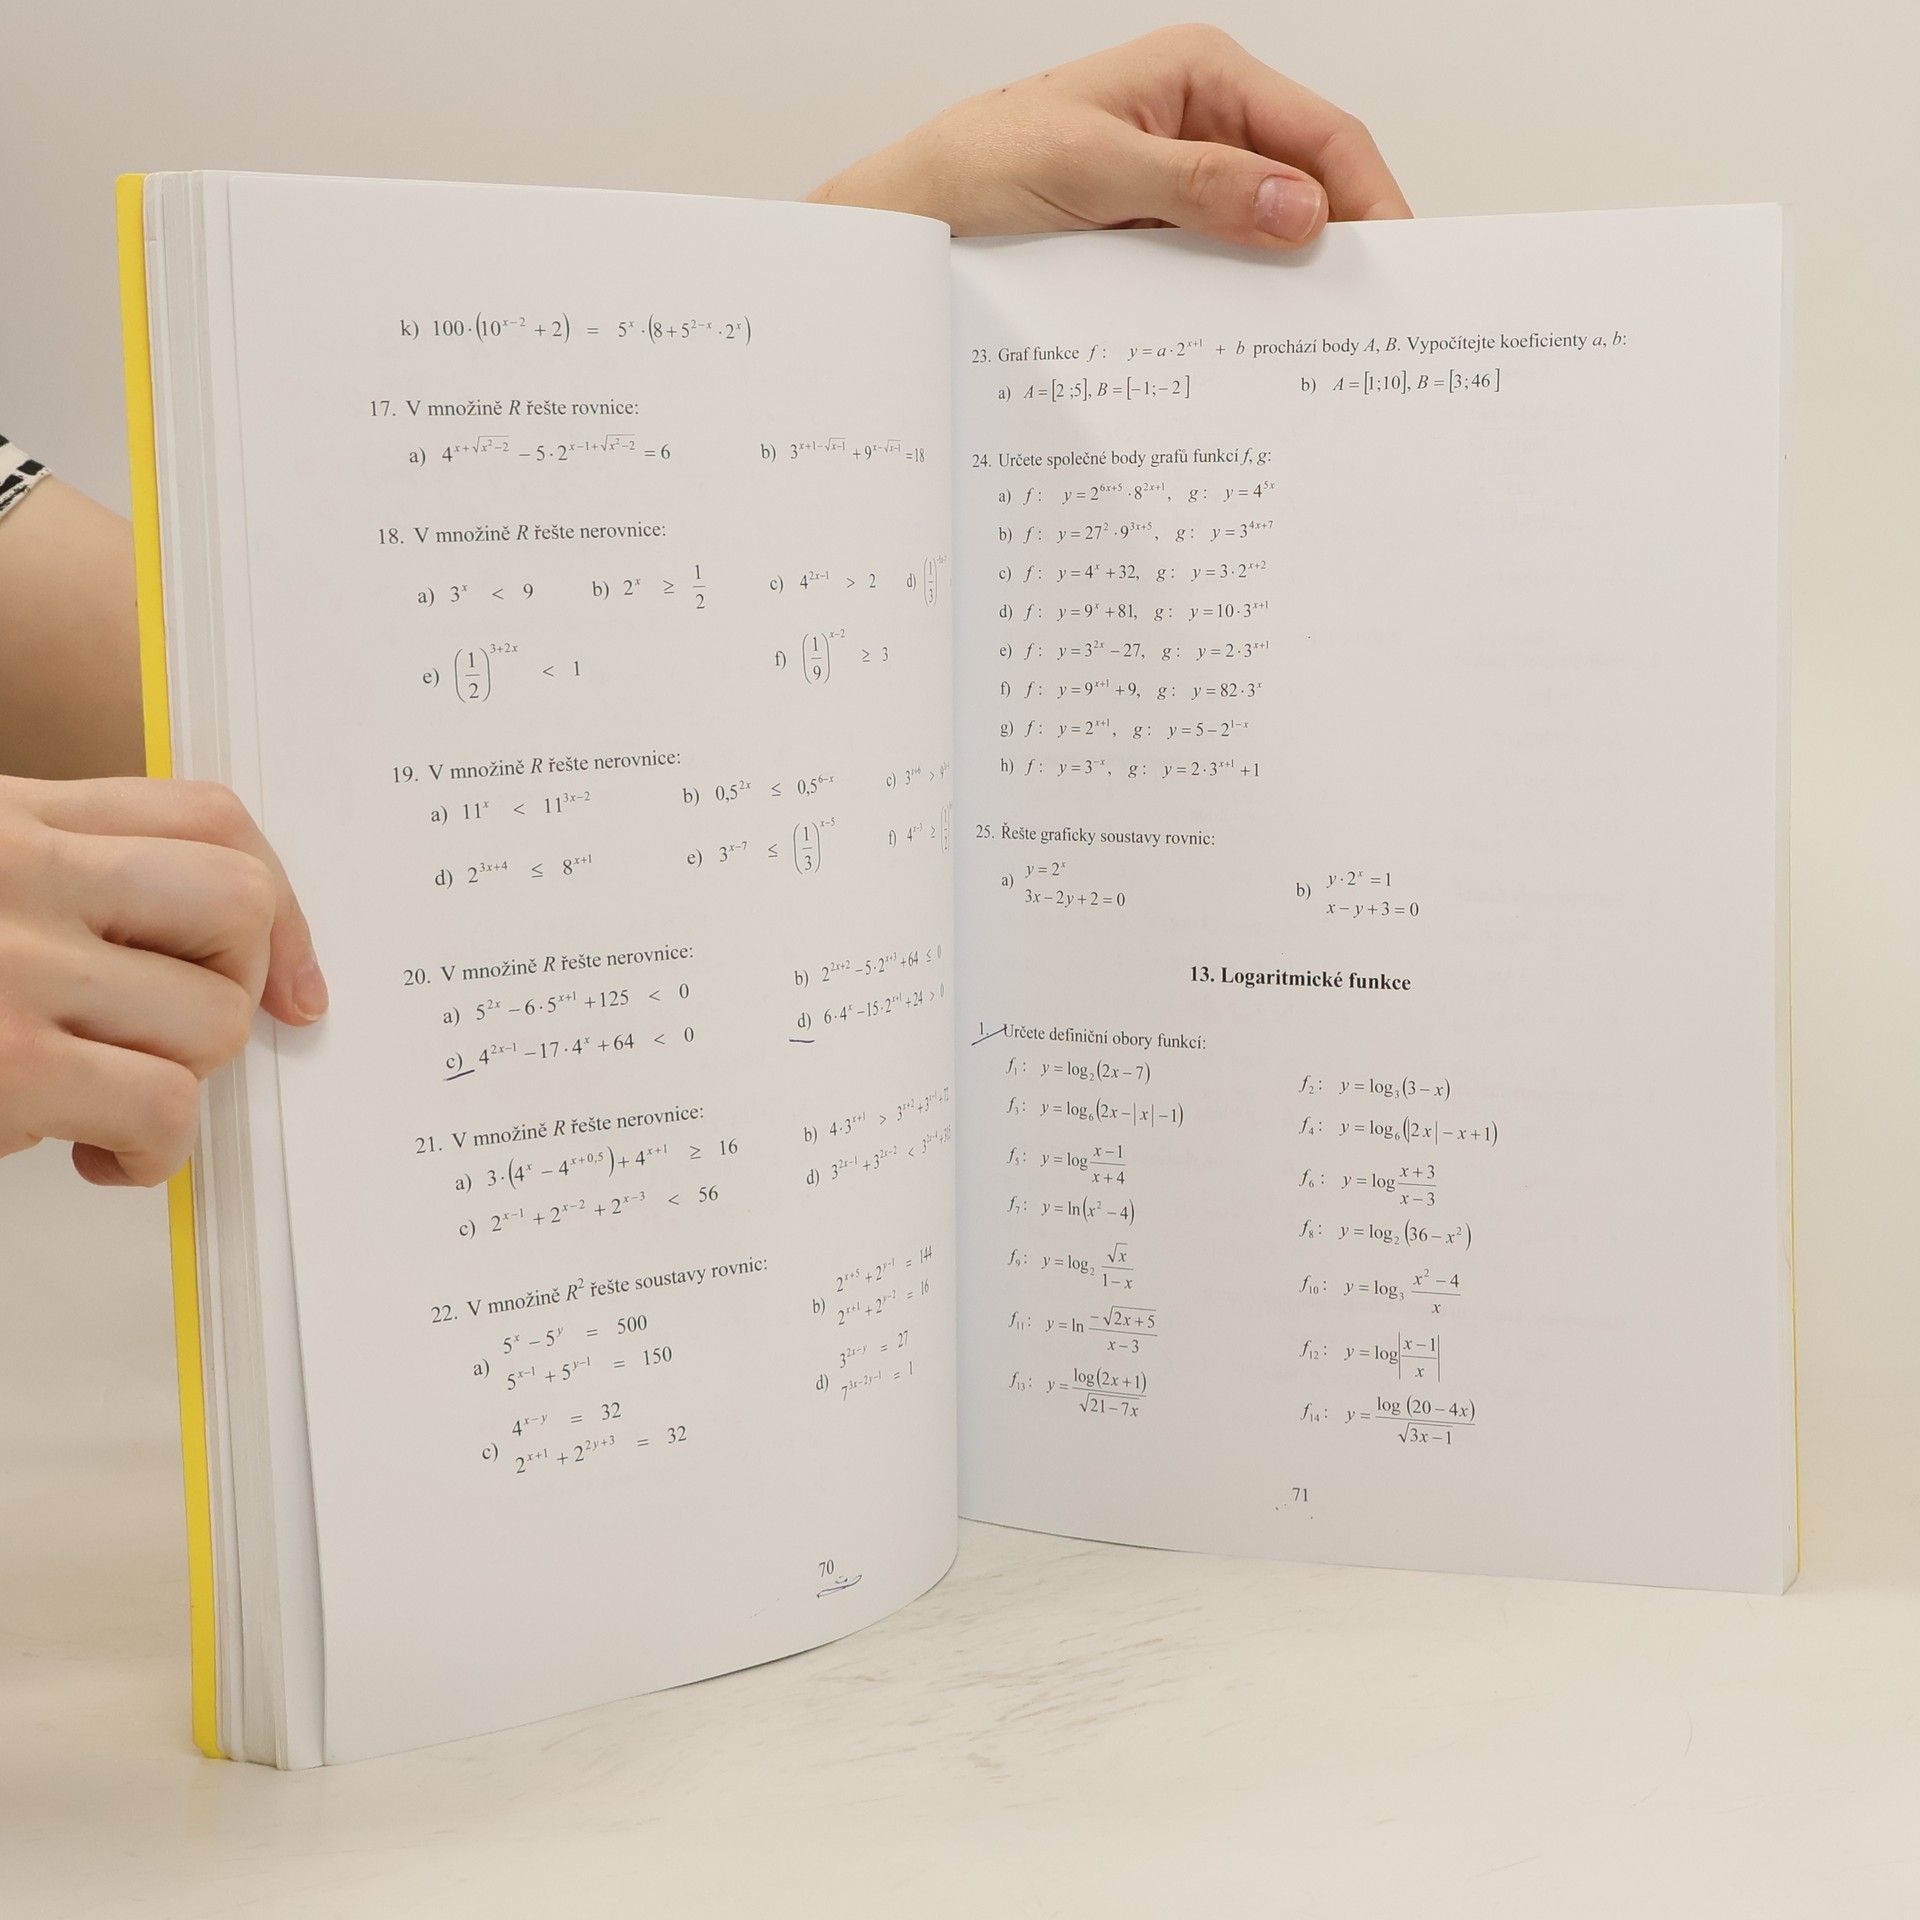 k) 100·(10^{x−2} + 2) = 5^x·(8 + 5^{2−x}·2^x)
17. V množině R řešte rovnice:
a) 4^{x+√(x²−2)} − 5·2^{x−1+√(x²−2)} = 6 b) 3^{x+1−√(x−1)} + 9^{x−√(x−1)} = 18
18. V množině R řešte nerovnice:
a) 3^x < 9 b) 2^x ≥ 1/2 c) 4^{2x−1} > 2 d) (1/3)
e) (1/2)^{3+2x} < 1 f) (1/9)^{x−2} ≥ 3
19. V množině R řešte nerovnice:
a) 11^x < 11^{3x−2} b) 0,5^{2x} ≤ 0,5^{6−x} c) 3^{x+6} >
d) 2^{3x+4} ≤ 8^{x+1} e) 3^{x−7} ≤ (1/3)^{x−5} f) 4^{x−3} ≥
20. V množině R řešte nerovnice:
a) 5^{2x} − 6·5^{x+1} + 125 < 0 b) 2^{2x+2} − 5·2^{x+3} + 64 ≤ 0
c) 4^{2x−1} − 17·4^x + 64 < 0 d) 6·4^x − 15·2^{x+1} + 24 > 0
21. V množině R řešte nerovnice:
a) 3·(4^x − 4^{x+0,5}) + 4^{x+1} ≥ 16 b) 4·3^{x+1} > 3^{x+2} + 3^{x−1} +
c) 2^{x−1} + 2^{x−2} + 2^{x−3} < 56 d) 3^{2x−1} + 3^{2x−2} <
22. V množině R² řešte soustavy rovnic:
a) 5^x − 5^y = 500 b) 2^{x+5} + 2^{y−1} = 144
5^{x−1} + 5^{y−1} = 150 2^{x+1} + 2^{y−2} = 16
c) 4^{x−y} = 32 d) 3^{2x−y} = 27
2^{x+1} + 2^{2y+3} = 32 7^{3x−2y−1} = 1
70
23. Graf funkce f: y = a·2^{x+1} + b prochází body A, B. Vypočítejte koeficienty a, b:
a) A = [2 ;5], B = [−1;−2 ] b) A = [1;10], B = [3;46 ]
24. Určete společné body grafů funkcí f, g:
a) f: y = 2^{6x+5}·8^{2x+1}, g: y = 4^{5x}
b) f: y = 27²·9^{3x+5}, g: y = 3^{4x+7}
c) f: y = 4^x + 32, g: y = 3·2^{x+2}
d) f: y = 9^x + 81, g: y = 10·3^{x+1}
e) f: y = 3^{2x} − 27, g: y = 2·3^{x+1}
f) f: y = 9^{x+1} + 9, g: y = 82·3^x
g) f: y = 2^{x+1}, g: y = 5 − 2^{1−x}
h) f: y = 3^{−x}, g: y = 2·3^{x+1} + 1
25. Řešte graficky soustavy rovnic:
a) y = 2^x b) y·2^x = 1
3x − 2y + 2 = 0 x − y + 3 = 0
13. Logaritmické funkce
1. Určete definiční obory funkcí:
f₁: y = log₂(2x − 7) f₂: y = log₃(3 − x)
f₃: y = log₆(2x − |x| − 1) f₄: y = log₆(|2x| − x + 1)
f₅: y = log (x − 1)/(x + 4) f₆: y = log (x + 3)/(x − 3)
f₇: y = ln(x² − 4) f₈: y = log₂(36 − x²)
f₉: y = log₂ √x/(1 − x) f₁₀: y = log₃ (x² − 4)/x
f₁₁: y = ln (−√(2x + 5))/(x − 3) f₁₂: y = log|(x − 1)/x|
f₁₃: y = log(2x + 1)/√(21 − 7x) f₁₄: y = log (20 − 4x)/√(3x − 1)
71